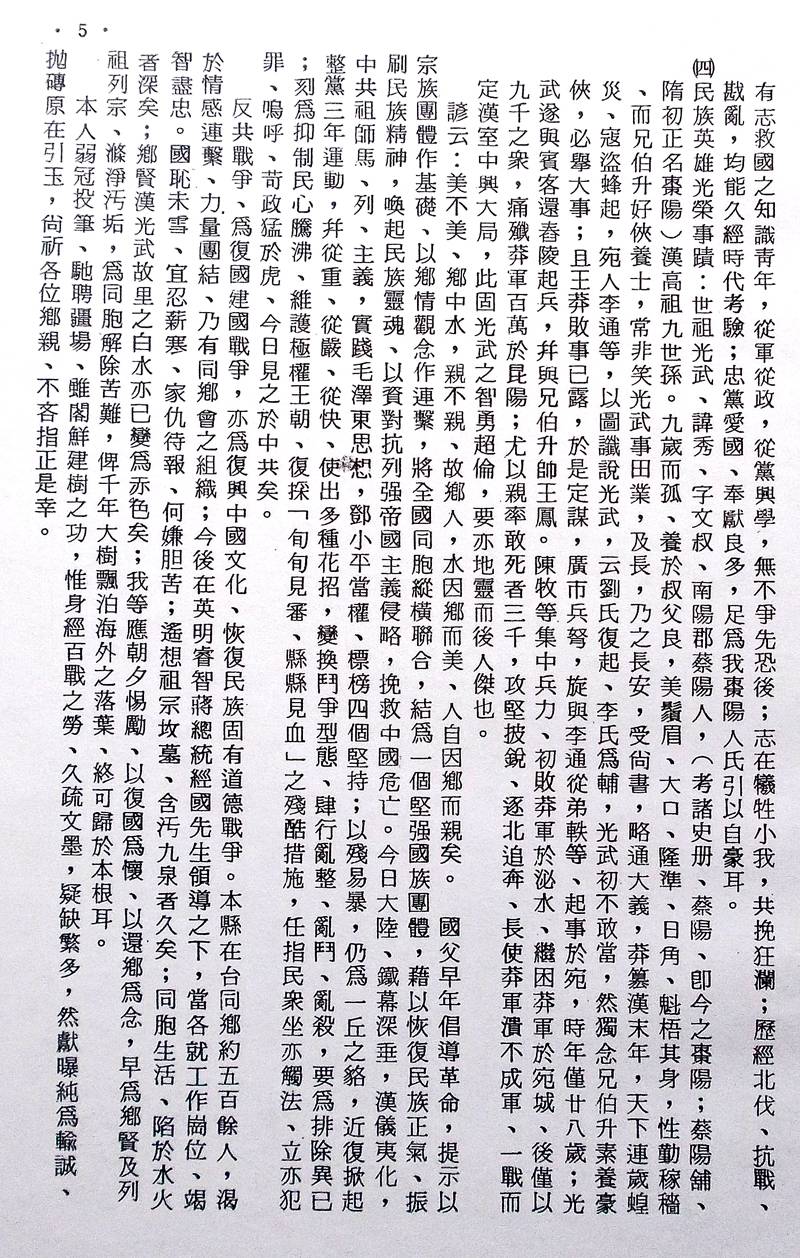 · 5 ·
有志救國之知識靑年，從軍從政，從黨興學，無不爭先恐後；志在犧牲小我，共挽狂瀾；歷經北伐、抗戰、
戡亂，均能久經時代考驗；忠黨愛國、奉獻良多，足爲我棗陽人氏引以自豪耳。
㈣民族英雄光榮事蹟：世祖光武、諱秀、字文叔、南陽郡蔡陽人，（考諸史册、蔡陽、卽今之棗陽；蔡陽舖、
隋初正名棗陽）漢高祖九世孫。九歲而孤、養於叔父良，美鬚眉、大口、隆準、日角、魁梧其身，性勤稼穡
、而兄伯升好俠養士，常非笑光武事田業，及長，乃之長安，受尙書，略通大義，莽篡漢末年，天下連歲蝗
災、寇盜蜂起，宛人李通等，以圖讖說光武，云劉氏復起、李氏爲輔，光武初不敢當，然獨念兄伯升素養豪
俠，必舉大事；且王莽敗事已露，於是定謀，廣市兵弩，旋與李通從弟軼等、起事於宛，時年僅廿八歲；光
武遂與賓客還舂陵起兵，幷與兄伯升帥王鳳。陳牧等集中兵力、初敗莽軍於泌水、繼困莽軍於宛城、後僅以
九千之衆，痛殲莽軍百萬於昆陽；尤以親率敢死者三千，攻堅披銳、逐北追奔、長使莽軍潰不成軍、一戰而
定漢室中興大局，此固光武之智勇超倫，要亦地靈而後人傑也。
諺云：美不美、鄉中水，親不親、故鄉人，水因鄉而美、人自因鄉而親矣。　國父早年倡導革命，提示以
宗族團體作基礎、以鄉情觀念作連繫，將全國同胞縱橫聯合，結爲一個堅强國族團體，藉以恢復民族正氣、振
刷民族精神，喚起民族靈魂、以資對抗列强帝國主義侵略，挽救中國危亡。今日大陸、鐵幕深垂，漢儀夷化，
中共祖師馬、列、主義，實踐毛澤東思想，鄧小平當權、標榜四個堅持；以殘易暴，仍爲一丘之貉，近復掀起
整黨三年運動，幷從重、從嚴、從快、使出多種花招，變換鬥爭型態、肆行亂整、亂鬥、亂殺，要爲排除異已
；刻爲抑制民心騰沸、維護極權王朝、復採「旬旬見審、縣縣見血」之殘酷措施，任指民衆坐亦觸法、立亦犯
罪、嗚呼、苛政猛於虎、今日見之於中共矣。
反共戰爭、爲復國建國戰爭，亦爲復興中國文化、恢復民族固有道德戰爭。本縣在台同鄉約五百餘人，渴
於情感連繫、力量團結、乃有同鄉會之組織；今後在英明睿智蔣總統經國先生領導之下，當各就工作崗位、竭
智盡忠。國恥未雪、宜忍薪寒、家仇待報、何嫌胆苦；遙想祖宗坟墓、含汚九泉者久矣；同胞生活、陷於水火
者深矣；鄉賢漢光武故里之白水亦已變爲赤色矣；我等應朝夕惕勵、以復國爲懷、以還鄉爲念，早爲鄉賢及列
祖列宗、滌淨汚垢，爲同胞解除苦難，俾千年大樹飄泊海外之落葉、終可歸於本根耳。
本人弱冠投筆、馳聘疆場、雖閣鮮建樹之功，惟身經百戰之勞、久疏文墨，疑缺繁多，然獻曝純爲輸誠、
拋磚原在引玉，尙祈各位鄉親、不吝指正是幸。